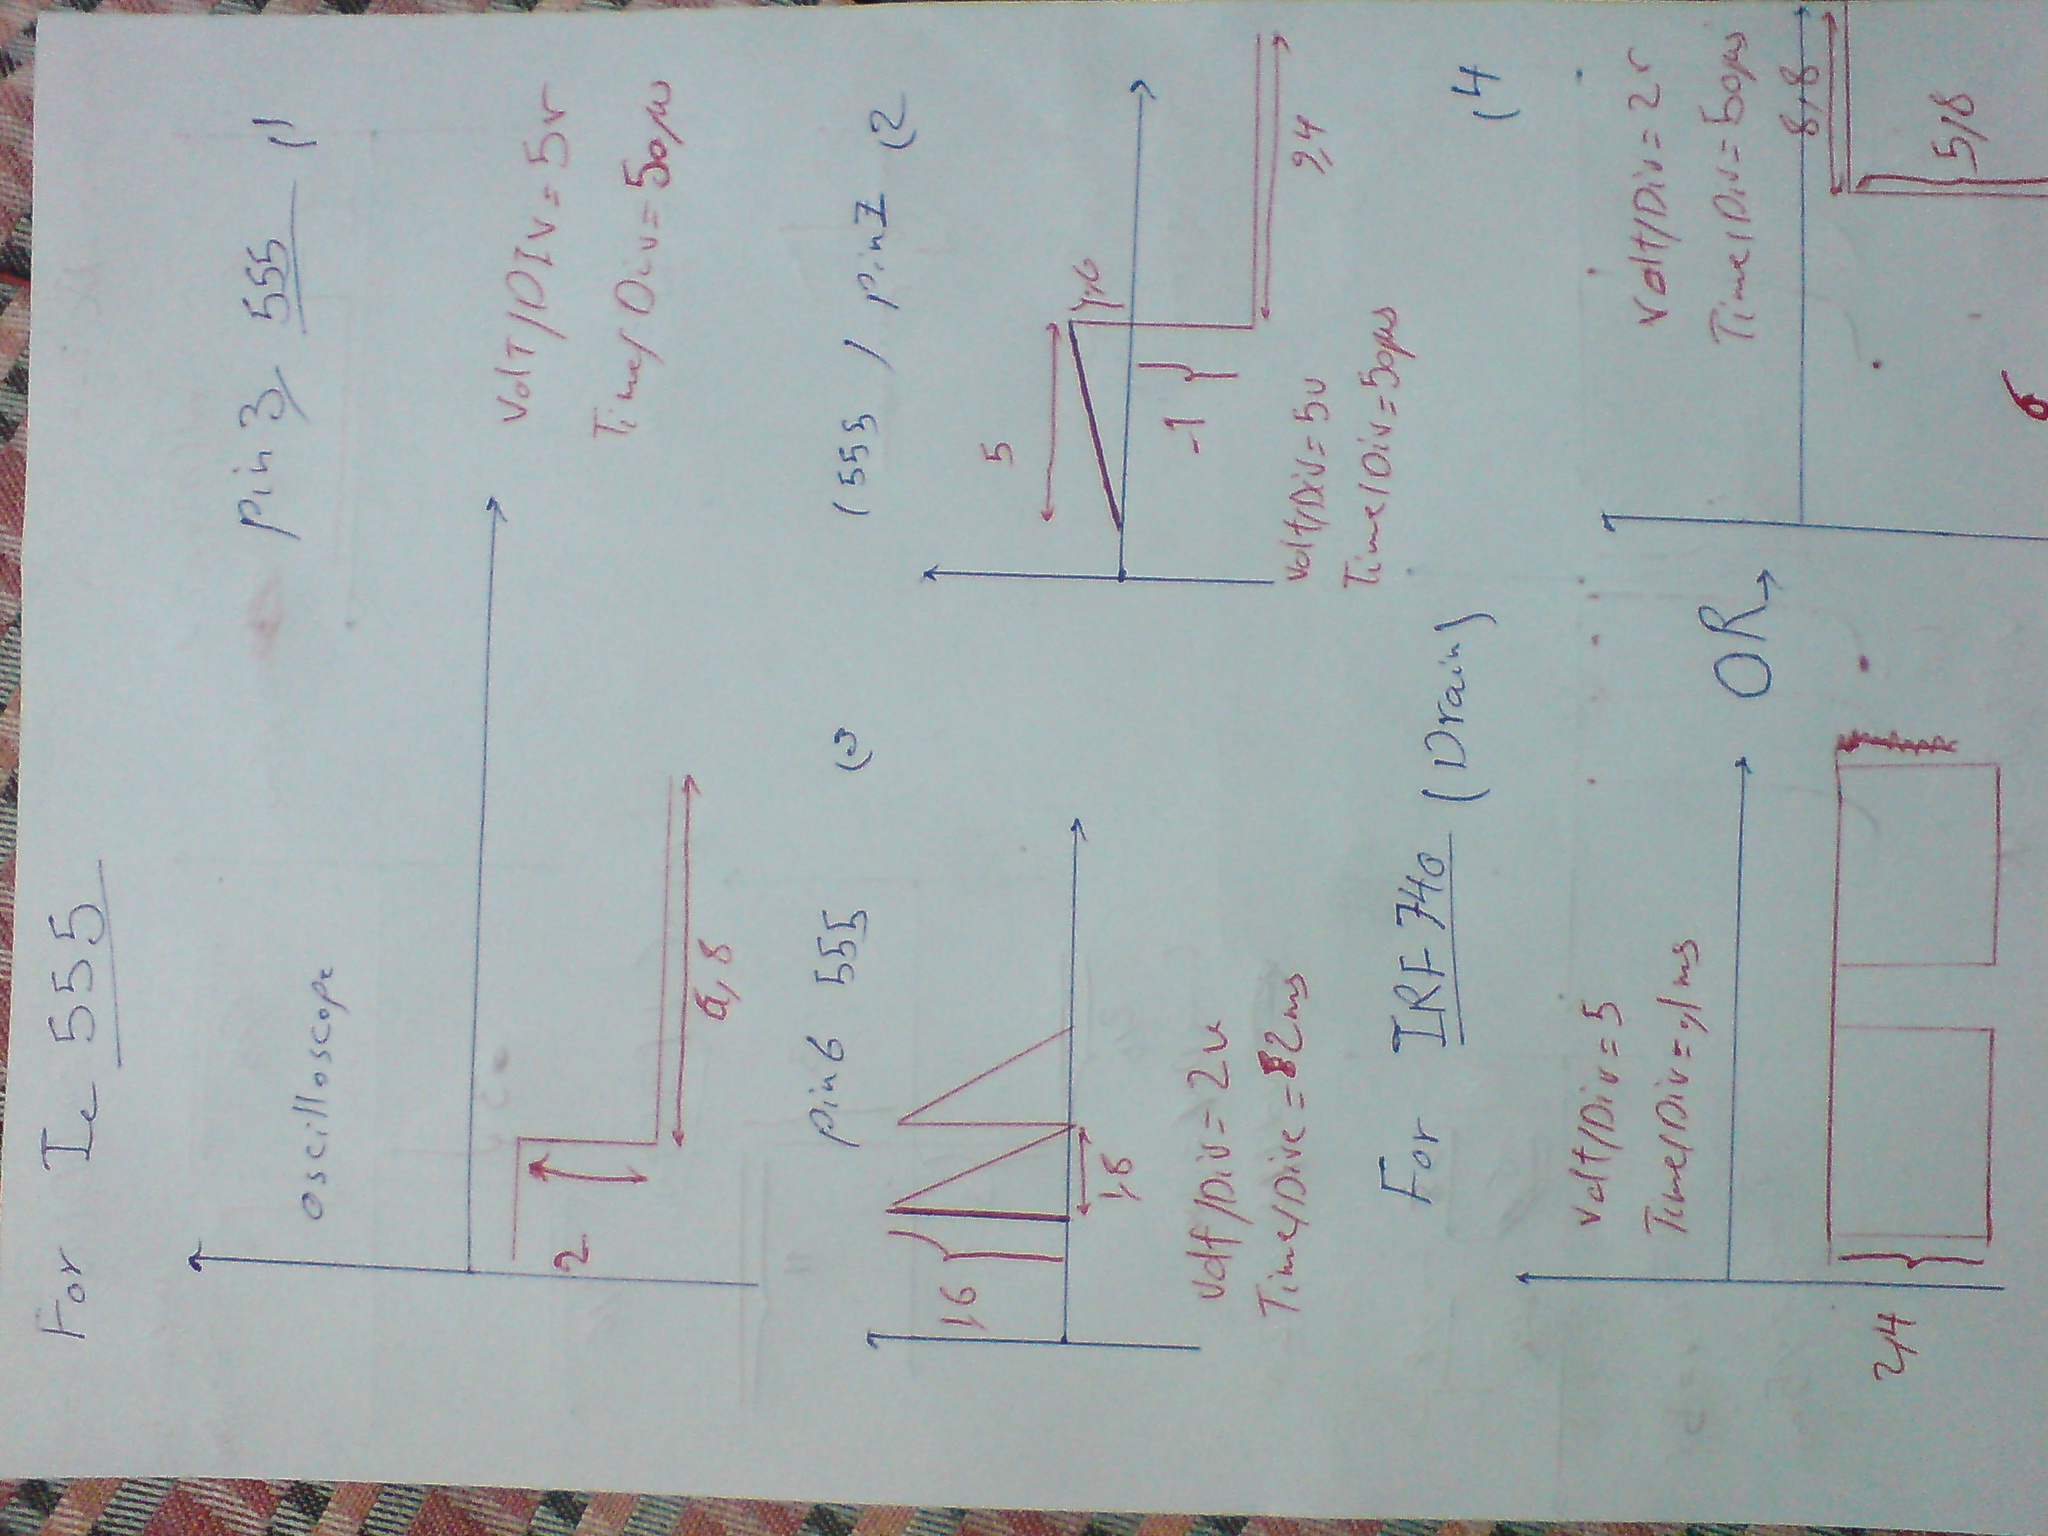 For Ic 555
oscilloscope
pin 3, 555 (1
Volt/DIV = 5v
Time/Div = 50μs
2
6,8
pin6 555 (3
1,6
1,8
Volt/Div = 2v
Time/Dive = 2ms
(555 / pin7 (2
5
1,6
-1
9,4
Volt/Div = 5v
Time/Div = 50μs
For IRF740 (Drain) (4
Volt/Div = 5
Time/Div = ,1ms
2,4
OR→
Volt/Div = 2v
Time/Div = 50μs
8,8
5,8
6